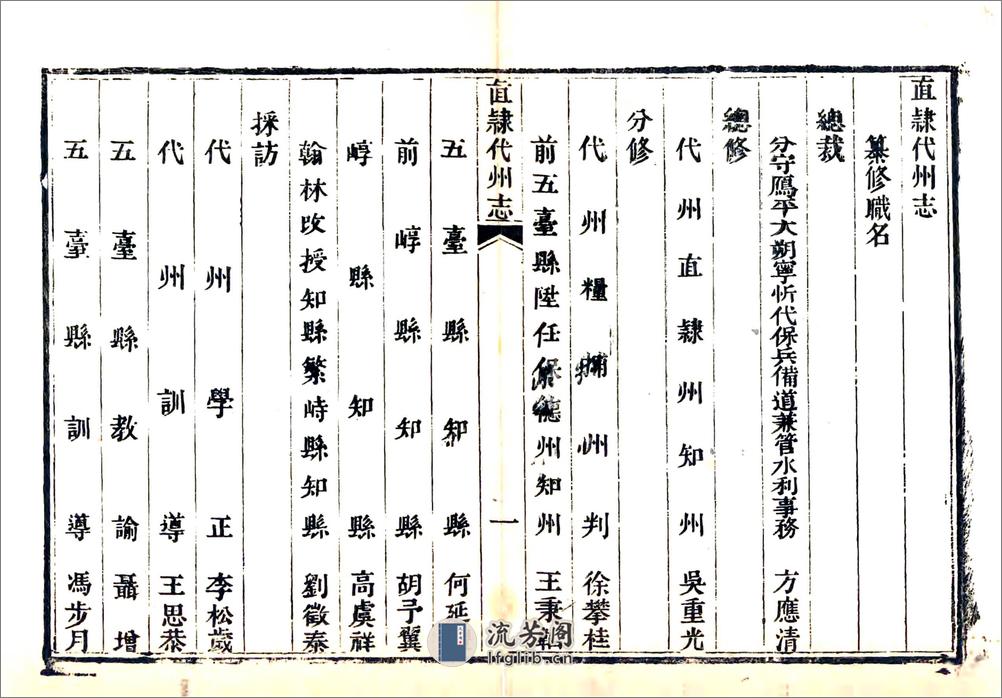 直隸代州志
纂修職名
總裁
分守鴈平大朔寧忻代保兵備道兼管水利事務 方應清
總修
代州直隸州知州 吳重光
分修
代州糧捕州判 徐攀桂
前五臺縣陞任保德州知州 王秉韜
直隸代州志 一
五臺縣知縣 何延
前崞縣知縣 胡予翼
崞縣知縣 高虞祥
翰林改授知縣繁峙縣知縣 劉徵泰
採訪
代州學正 李松歲
代州訓導 王思恭
五臺縣教諭 聶增
五臺縣訓導 馮步月
流芳阁
lfglib.cn